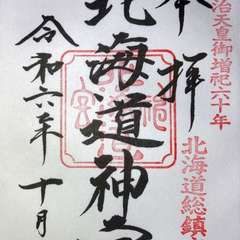 治天皇御増祀六十年
北海道総鎮
奉拝
北海道神
令和六年十月